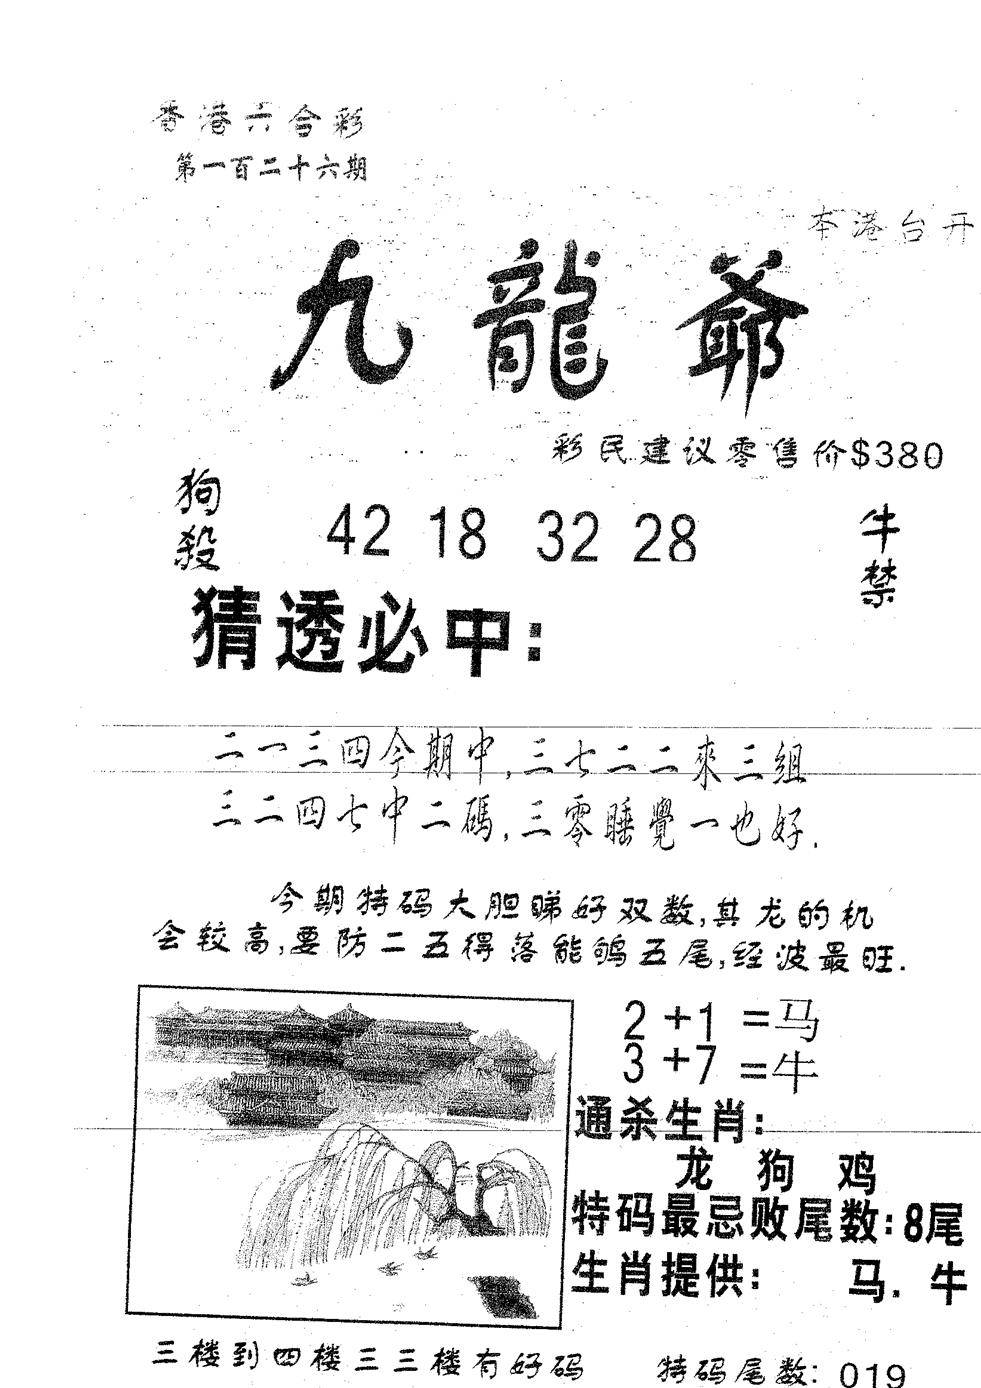 香港六合彩
第一百二十六期
本港台开
九龍爺
彩民建议零售价$380
狗殺
42 18 32 28
牛禁
猜透必中:
二一三四今期中,三七二二來三組
三二四七中二碼,三零睡覺一也好.
今期特码大胆睇好双数,其龙的机
会较高,要防二五得落能鸲五尾,经波最旺.
2+1=马
3+7=牛
通杀生肖:
龙 狗 鸡
特码最忌败尾数:8尾
生肖提供: 马. 牛
三楼到四楼三三楼有好码 特码尾数: 019